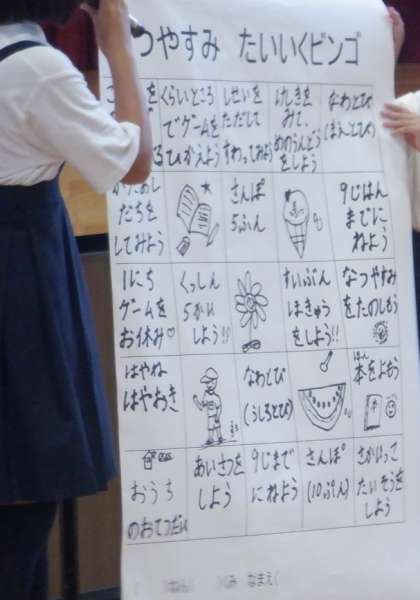 つやすみ たいいくビンゴ
くらいところ
でゲームを
ひかえよう
しせいを
ただして
すわってみよう
けしきを
みて、
めのうんどう
をしよう
なわとび
(まえとび)
かたあし
だちを
してみよう
さんぽ
5ふん
9じはん
までに
ねよう
1にち
ゲームを
お休み♡
くっしん
5かい
しよう!!
すいぶん
ほきゅう
をしよう!!
なつやすみ
をたのしもう
はやね
はやおき
なわとび
(うしろとび)
ほん
本をよもう
おうち
のおてつだい
あいさつを
しよう
9じまで
にねよう
さんぽ
(10ぷん)
さかいって
たいそうを
しよう
なまえ(